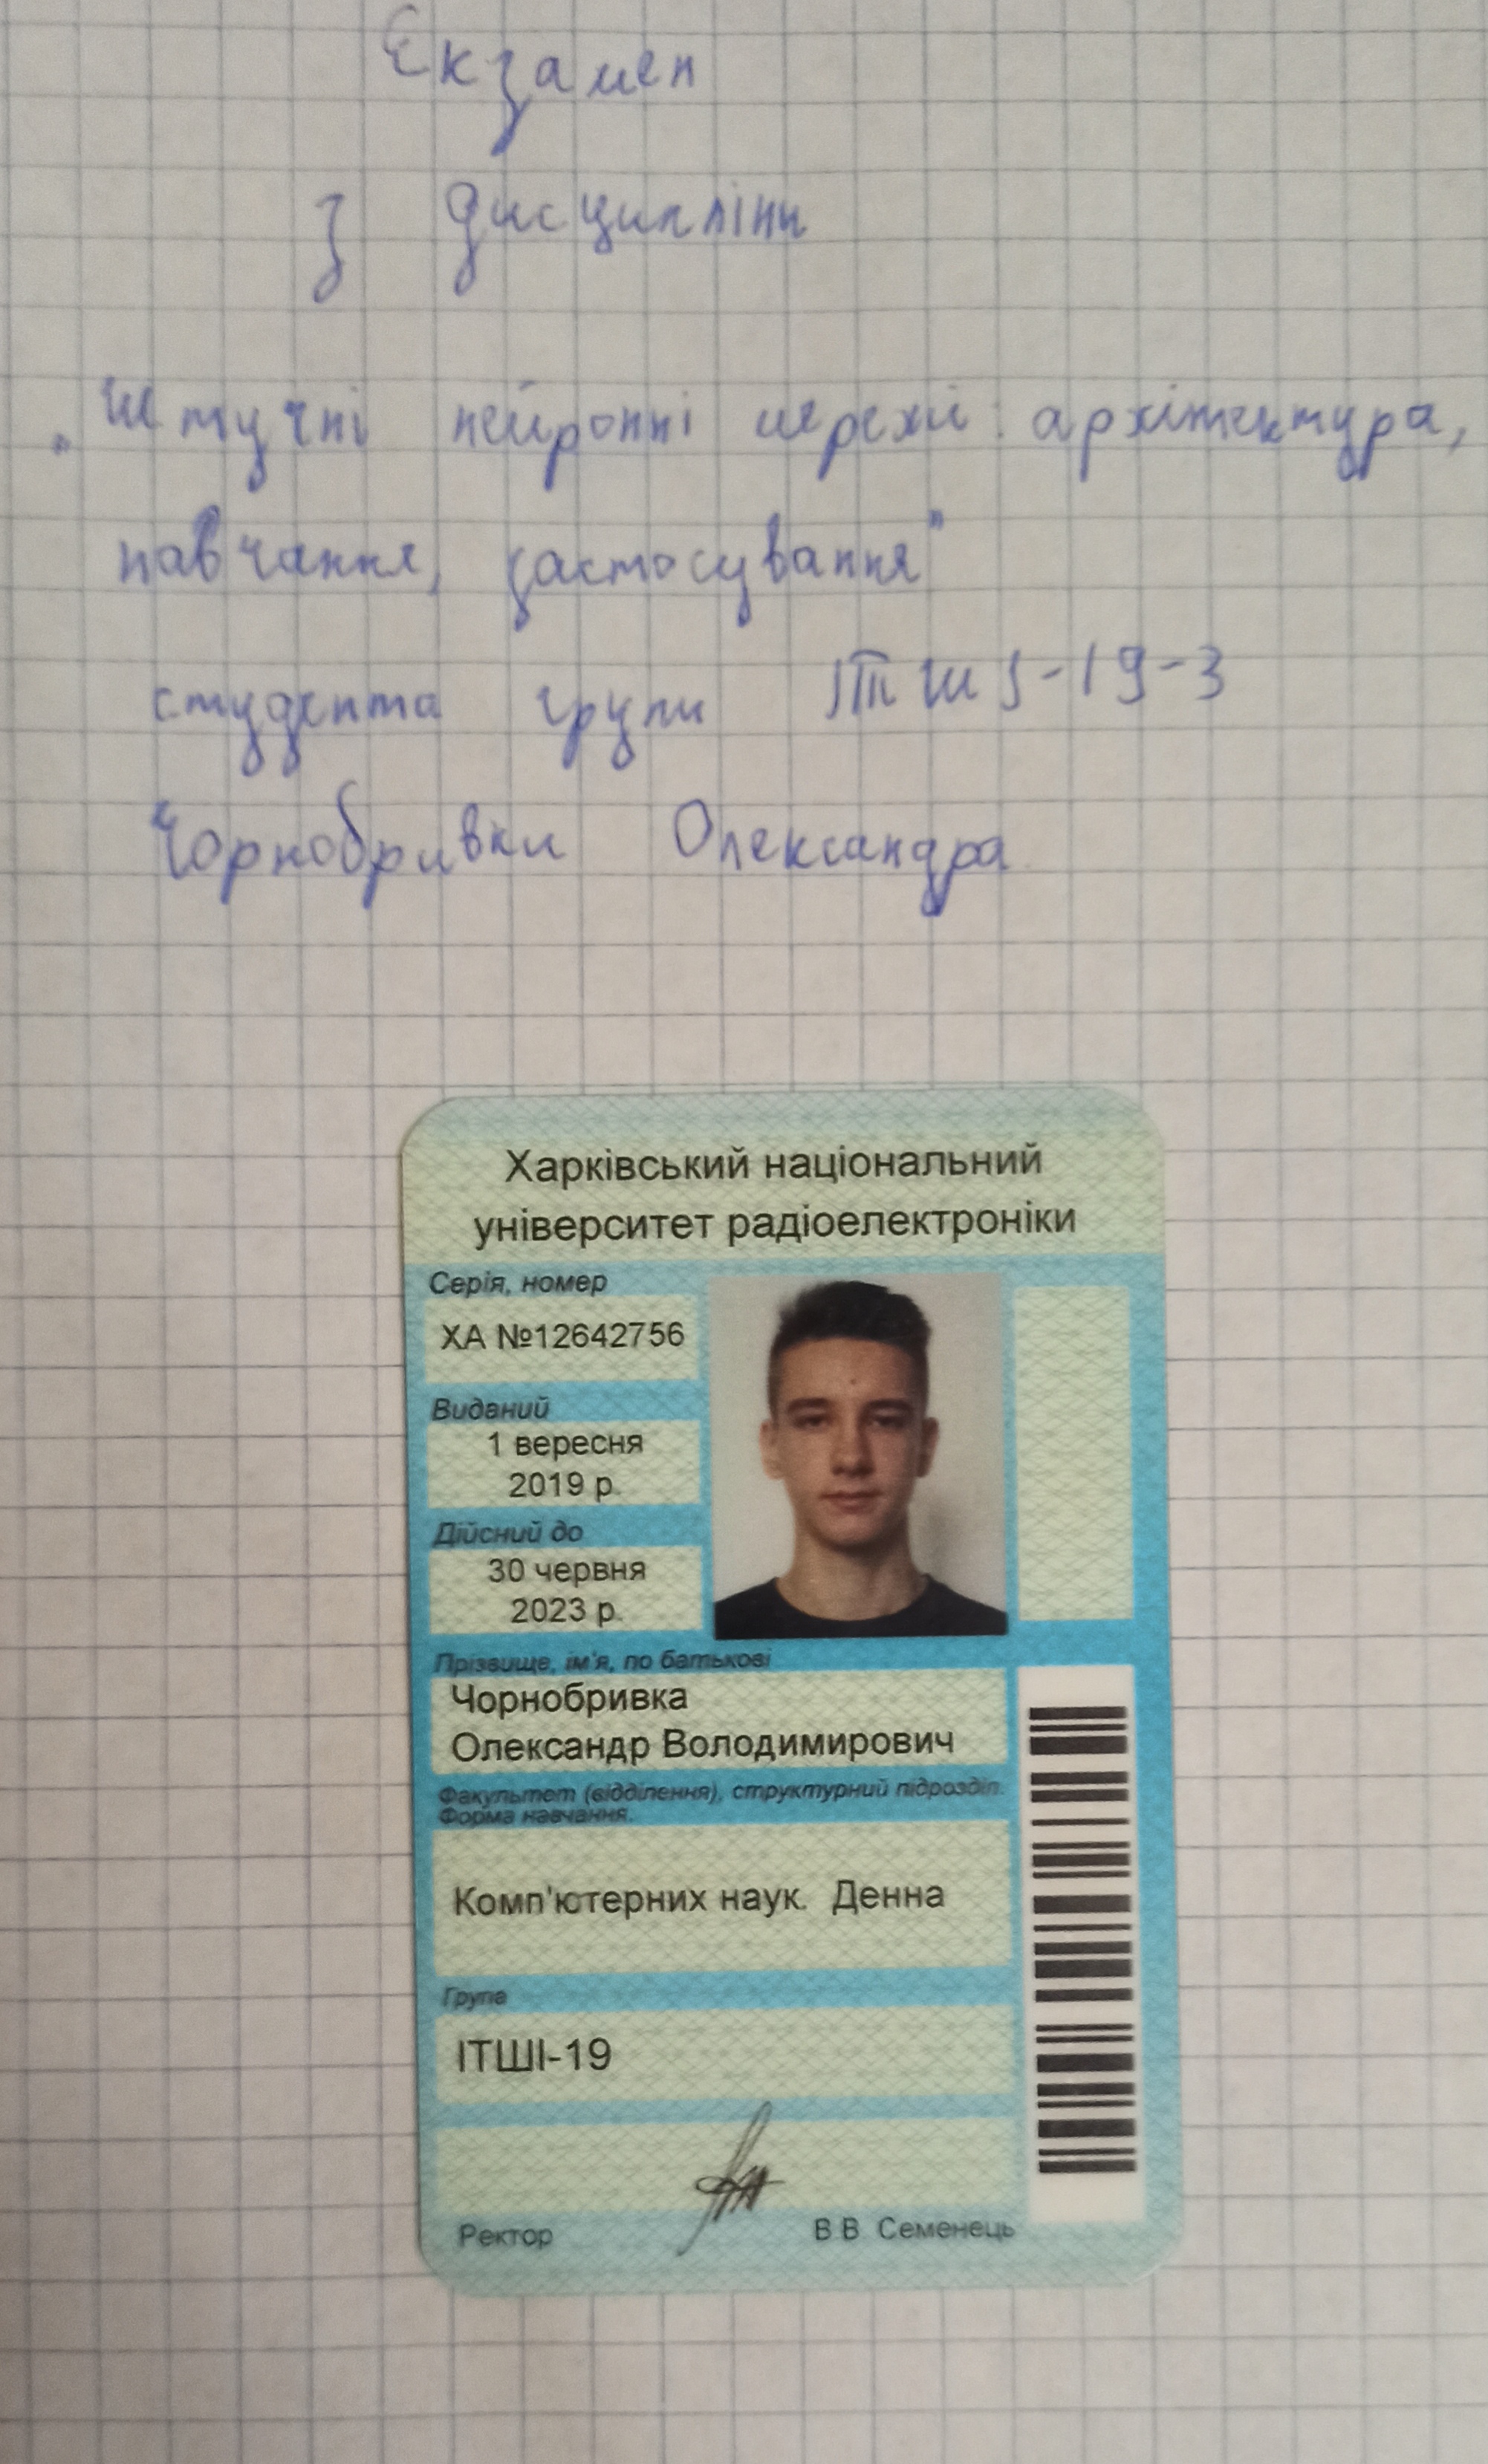 Екзамен
з дисципліни
„Штучні нейронні мережі: архітектура,
навчання, застосування"
студента групи ІТШІ-19-3
Чорнобривки Олександра
Харківський національний
університет радіоелектроніки
Серія, номер
ХА №12642756
Виданий
1 вересня
2019 р.
Дійсний до
30 червня
2023 р.
Прізвище, ім'я, по батькові
Чорнобривка
Олександр Володимирович
Факультет (відділення), структурний підрозділ.
Форма навчання.
Комп'ютерних наук. Денна
Група
ІТШІ-19
Ректор В.В. Семенець